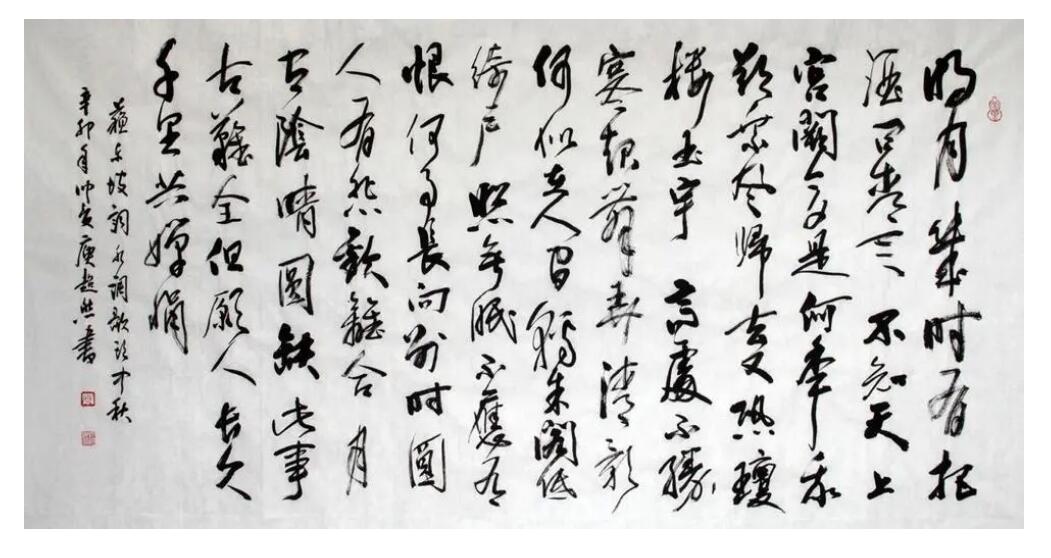 明月幾时有把
酒问青天不知天上
宫闕今夕是何年我
欲乘风归去又恐瓊
楼玉宇高處不勝
寒起舞弄清影
何似在人间转朱閣低
绮户照无眠不應有
恨何事長向别时圓
人有悲歡離合月
有陰晴圆缺此事
古難全但願人长久
千里共嬋娟
蘇东坡词水调歌头中秋
辛卯年仲超然書